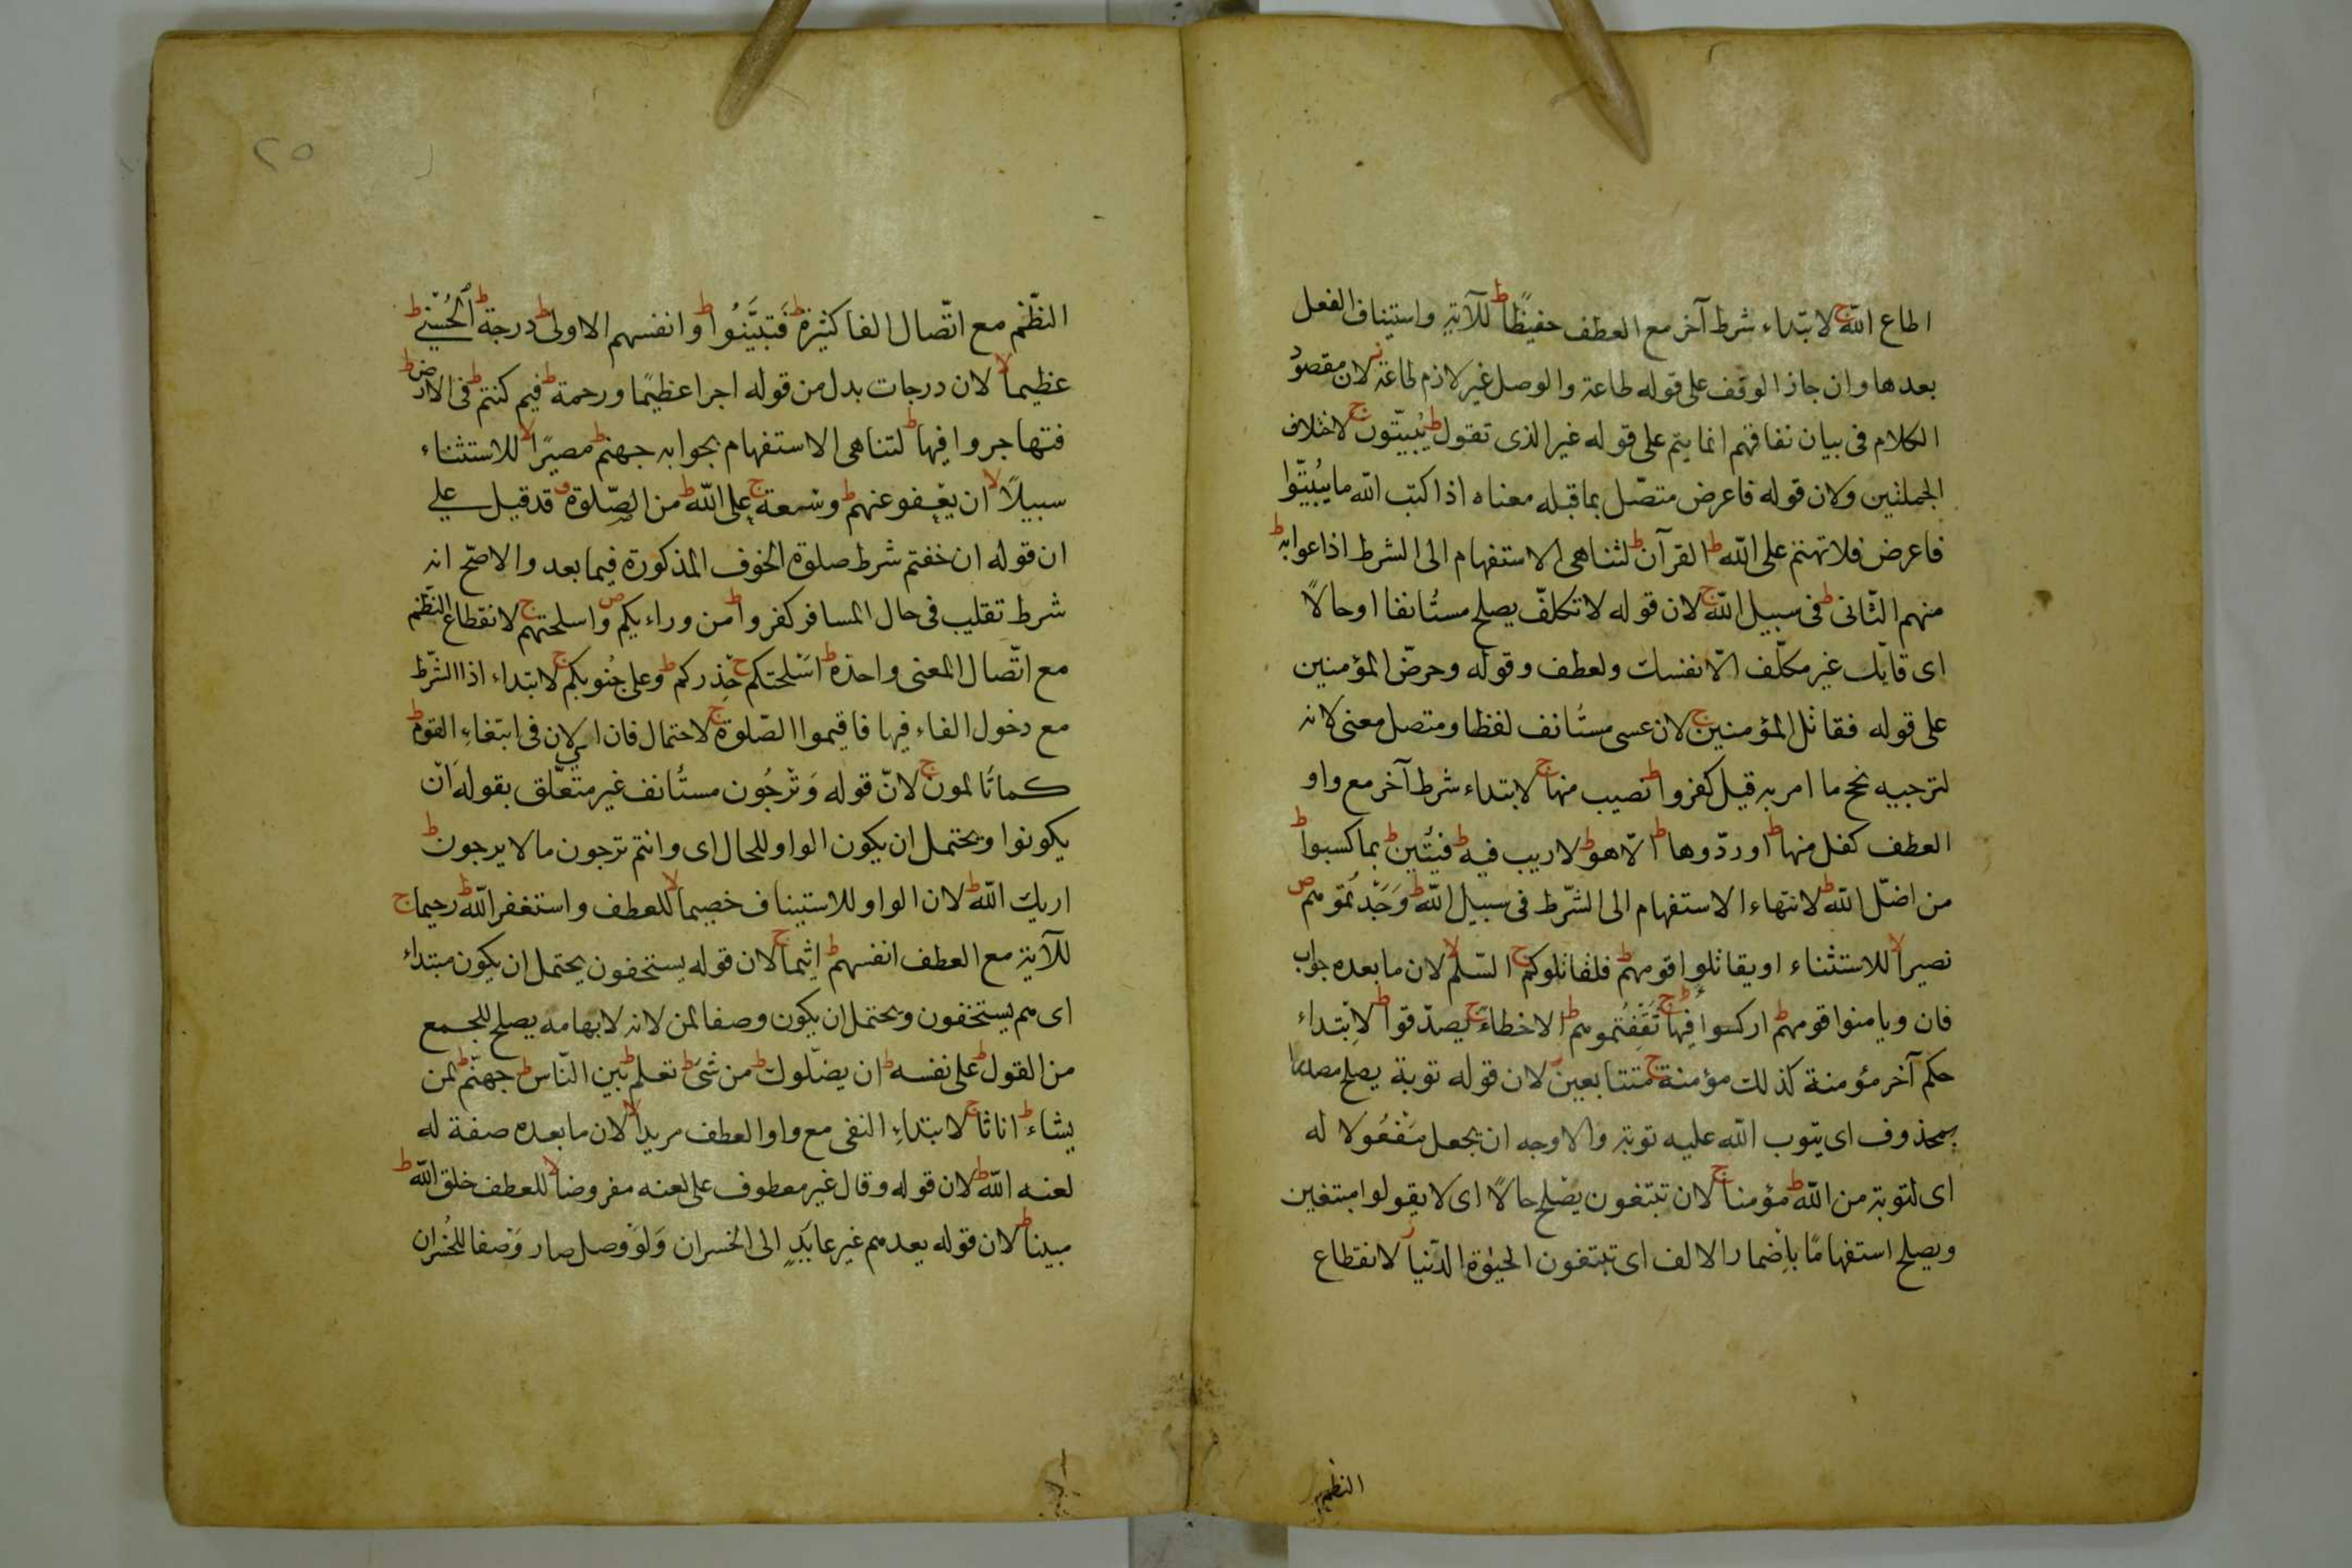 اطاع الله ج لابتداء شرط آخر مع العطف حفيظًا ط للآية واستيناف الفعل
بعدها وان جاز الوقف على قوله طاعة والوصل غير لازم طاعة ز لان مقصود
الكلام فى بيان نفاقهم انما يتم على قوله غير الذى تقول ط يبيّتون ج لاختلاف
الجملتين ولان قوله فاعرض متصّل بما قبله معناه اذا كتب الله ما يُبيّتوا
فاعرض فلا تهتم على الله ط القرآن ط لتناهى الاستفهام الى الشرط اذاعوا به ط
منهم الثّانى ط فى سبيل الله ج لان قوله لا تكلفّ يصلح مستُانفا او حالاً
اى قاتِل غير مكلّف الّا نفسك ولعطف وقوله وحرضّ المؤمنين
على قوله فقاتل المؤمنين ج لان عسى مستُانف لفظا ومتصل معنى لانه
لترجيه نحج ما امر به قيل كفروا ط نصيب منها ج لابتداء شرط آخر مع واو
العطف كفل منها ط او ردّوها ط الّا هو ط لا ريب فيه ط فيئتين ط بما كسبوا ط
من اضّل الله ط لانتهاء الاستفهام الى الشّرط فى سبيل الله ط وَجَدْتُمُوهم ص
نصيرا لا للاستثناء او يقاتلوا قومهم ط فلقاتلوكم ج السّلم لا لان ما بعده جواب
فان ويامنوا قومهم ط اركسوا فِيها ج ثَقَفِتُموهم ط الا خطاءً ج يصدّقوا ط لابتداء
حكم آخر مؤمنة كذلك مؤمنة ج متتابعين ز لان قوله توبة يصلح مصدرا
بمحذوف اى يتوب الله عليه توبة والاوجه ان يجعل مَفْعُولا له
اى لتوبة من الله ط مؤمنا ج لان تبتغون يصْلح حالاً اى لا يقولوا مبتغين
ويصلح استفهامًا باِضمار الالف اى تبتغون الحيوٰة الدّنيا ز لانقطاع
النظم
٢٥
النظّم مع اتّصال الفا كثيرة ط فَتبَيَّنُوا ط وانفسهم الاولى ط درجة ط الْحُسْنى ط
عظيما لا لان درجات بدل من قوله اجرا عظيمًا ورحمة ط فيم كنتم ط فى الارض ط
فتهاجروا فيها ط لتناهى الاستفهام بجوابه جهنم ط مصيرًا لا للاستثناء
سبيلاً لا ان يعْفو عنهم ط وسَعة ج على الله ط من الصّلوة ق قد قيل على
ان قوله ان خفتم شرط صلوة الخوف المذكورة فيما بعد والاصحّ انه
شرط تقليب فى حال المسافر كفروا ط من وراءيكم ص واسلحتهم ج لانقطاع النّظم
مع اتّصال المعنى واحدة ط اسَلحتكم ج حِذركم ط وعلى جُنوبكم ج لابتداء اذا الشّرط
مع دخول الفاء فيها فاقيموا الصّلوة ج لاحتمال فان اى لان فى ابتغاءِ القوم ط
كما تُالمون ج لانّ قوله وَتَرْجُون مستُانف غير متعّلق بقوله انْ
يكونوا ويحتمل ان يكون الواو للحال اى وانتم ترجون ما لا يرجون ط
اريك الله ط لان الواو للاستيناف خصيما لا للعطف واستغفر الله ط رحيما ج
للآية مع العطف انفسهم ط اثيما ج لان قوله يستخفون يحتمل ان يكون مبتداء
اى هم يستخفون ويحتمل ان يكون وصفا لمن لانه لابهامه يصلح للجمع
من القول ط على نفسه ط ان يضّلوك ط من شىَ ط تعلم ط بين النّاس ط جهنّم ط لمن
يشاء ط اناثا ج لابتداءِ النفى مع واو العطف مريدا لا لان ما بعده صفة له
لعنه الله ط لان قوله وقال غير معطوف على لعنه مفروضا لا للعطف خلق الله ط
مبينا ط لان قوله يعدهم غير عايَدٍ الى الخسران وَلوَ وصل صار وَصفا للخُسْران